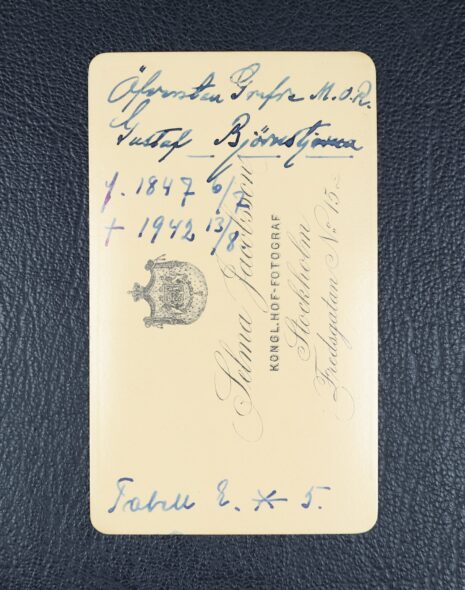 Öfversten Grefve M.O.R.
Gustaf Björnstjerna
f. 1847 6/7
† 1942 13/8
Selma Jacobsson
KONGL. HOF-FOTOGRAF
Stockholm
Fredsgatan No 15.
Tabell E. * 5.